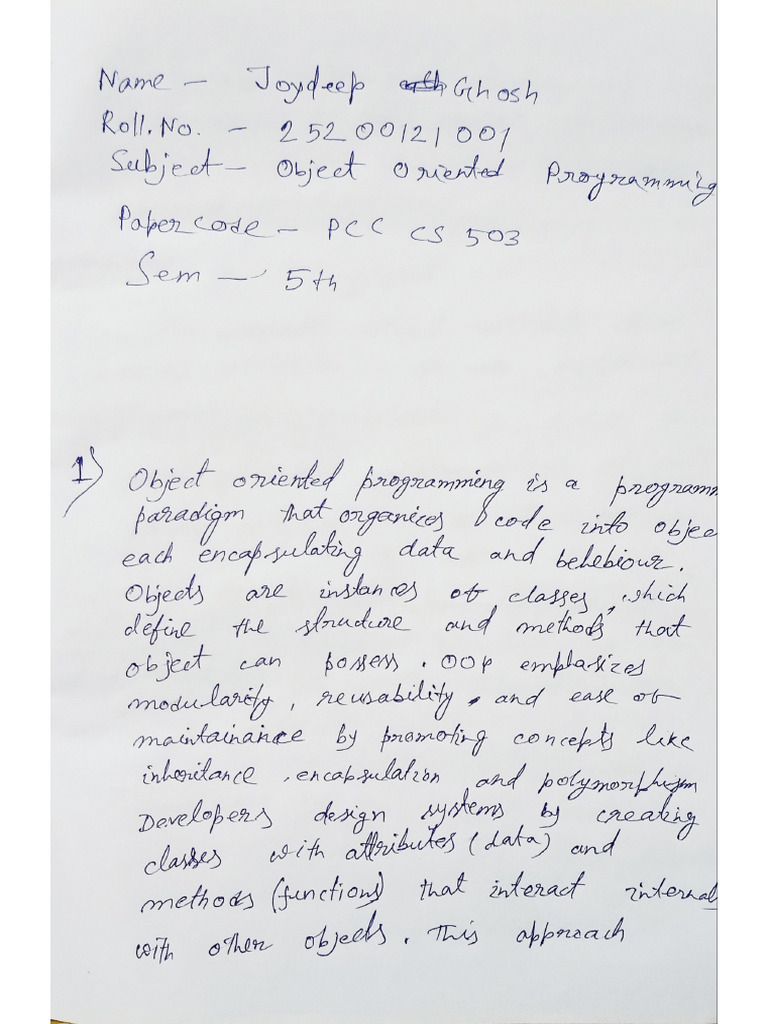 Name - Joydeep Ghosh
Roll. No. - 25200121001
Subject - Object Oriented Programming
Paper code - PCC CS 503
Sem - 5th
1) Object oriented programming is a programm
paradigm that organices code into objec
each encapsulating data and behebiour.
Objects are instances of classes, which
define the structure and methods that
object can possess. OOP emphasizes
modularity, reusability, and ease of
maintainance by promoting concepts like
inheritance, encapsulation and polymorphism
Developers design systems by creating
classes with attributes (data) and
methods (functions) that interact internal
with other objects. This approach